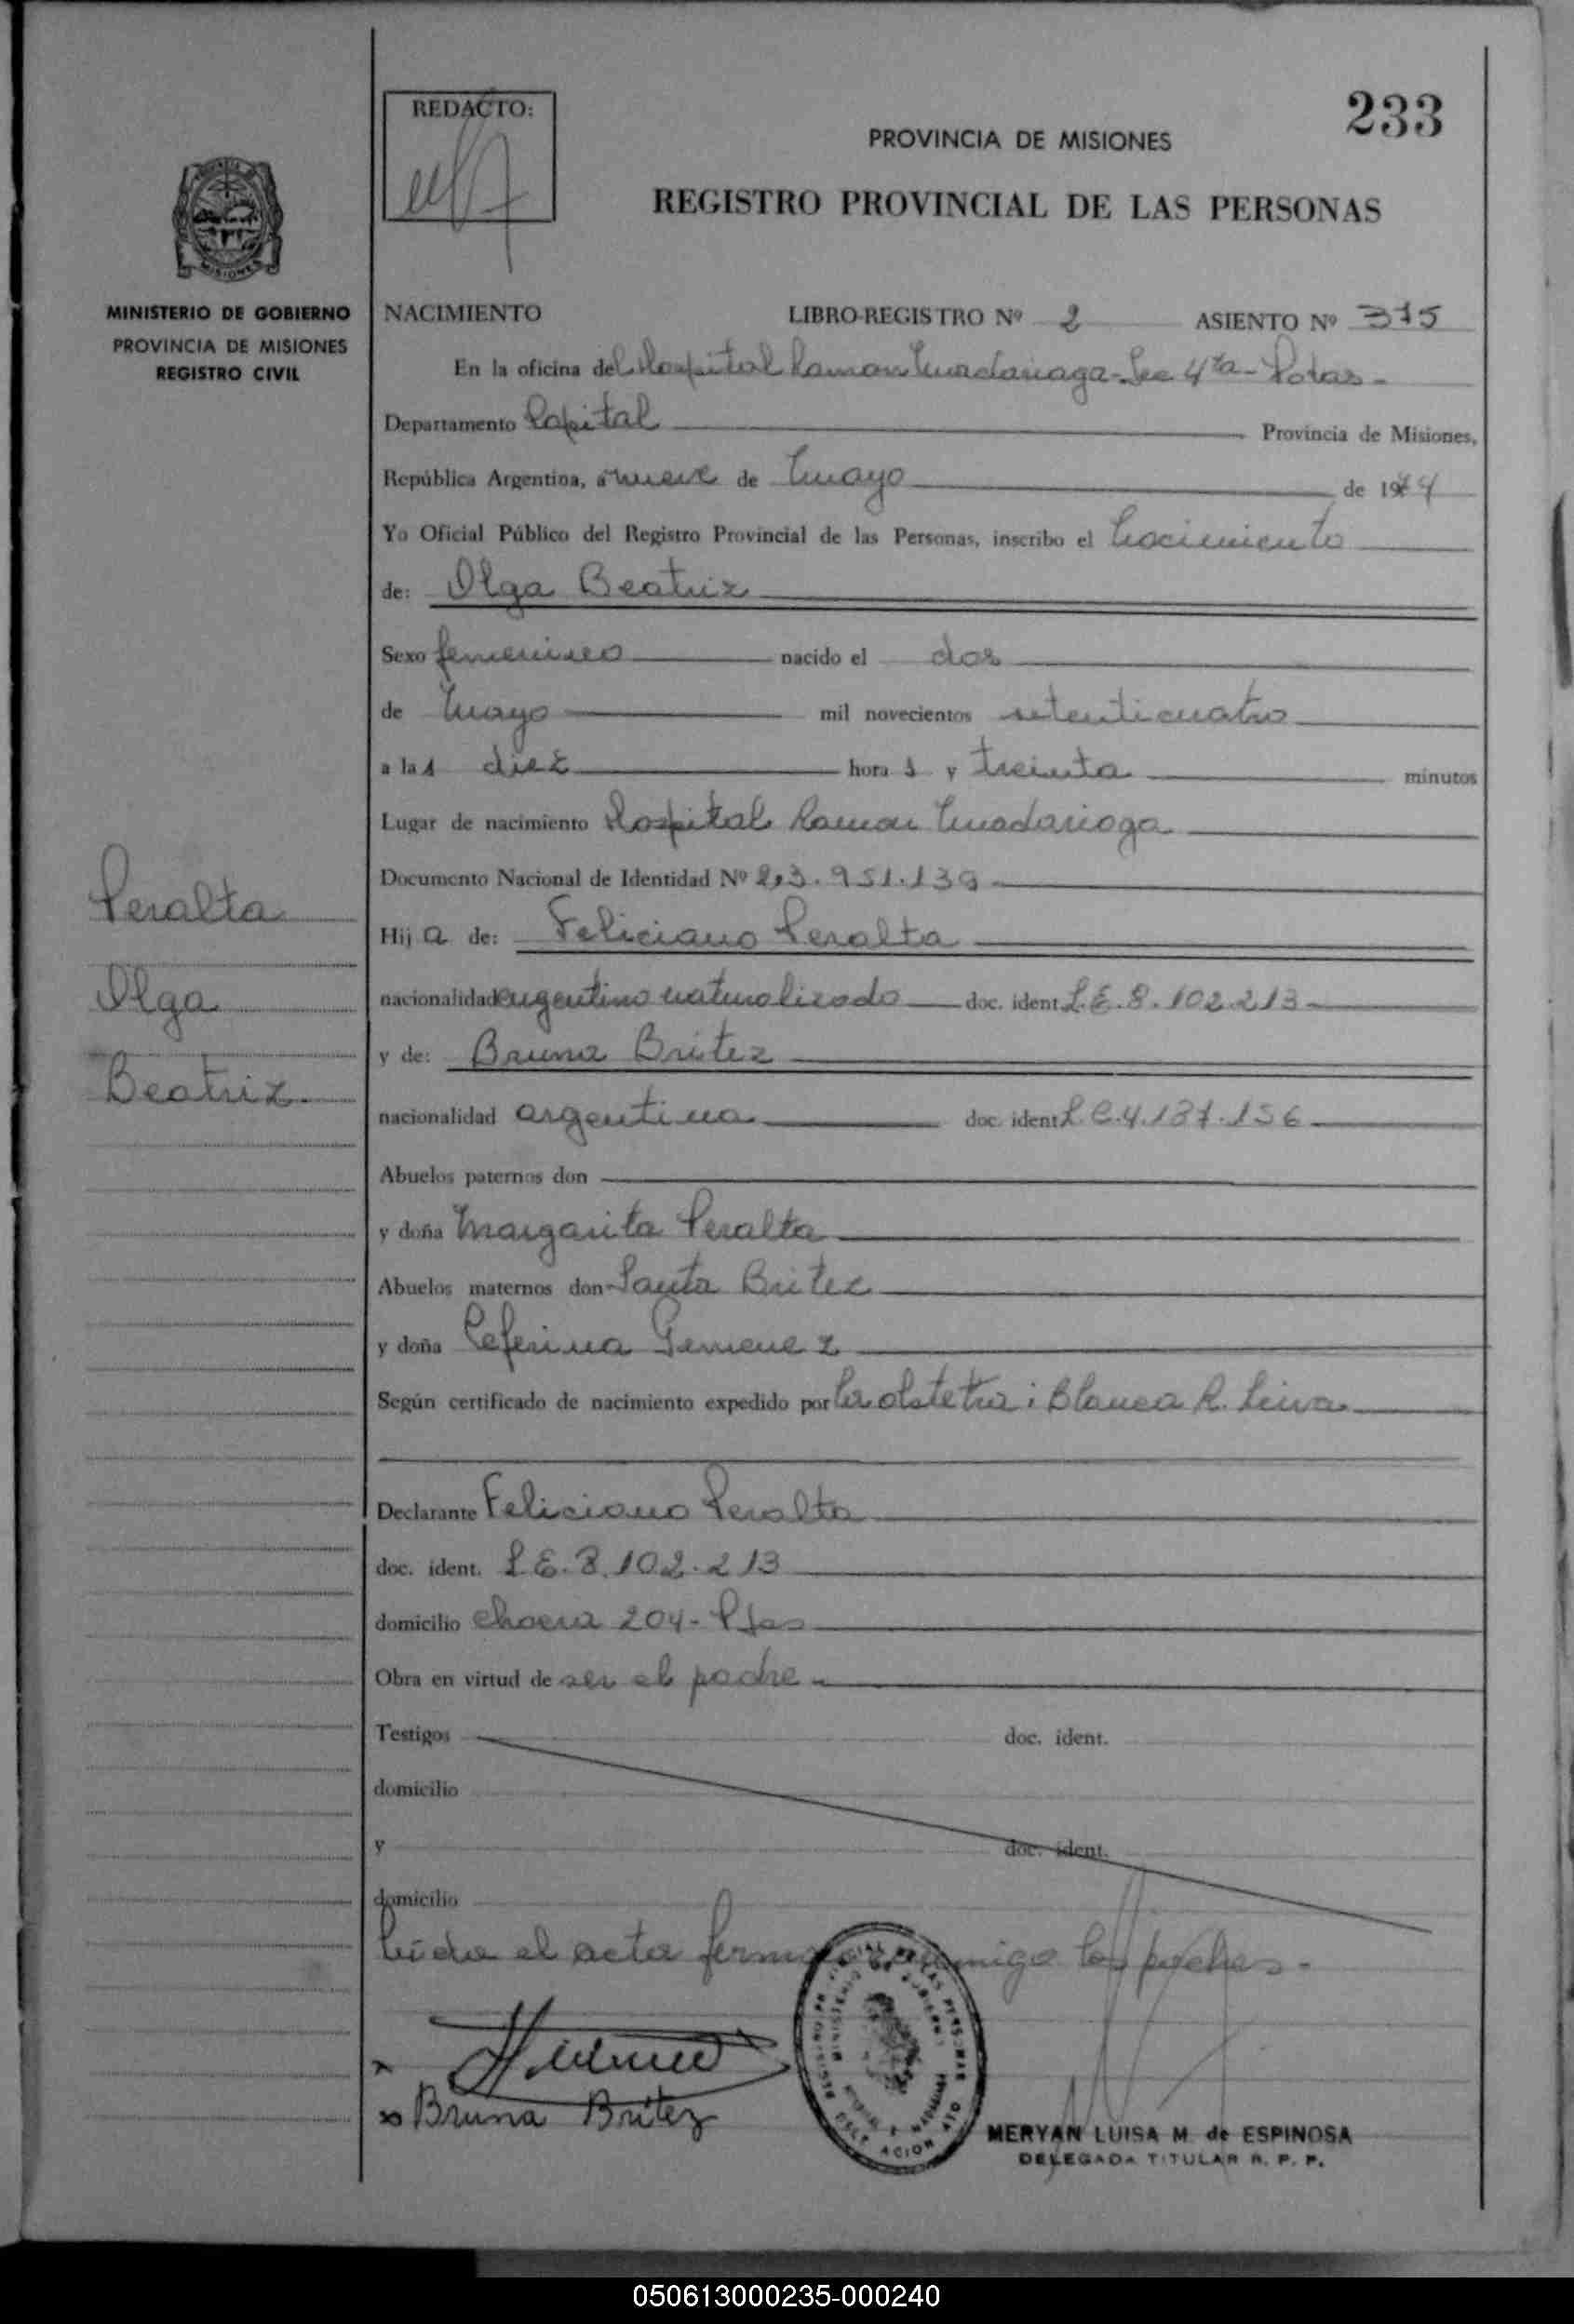 REDACTO:
233
PROVINCIA DE MISIONES
REGISTRO PROVINCIAL DE LAS PERSONAS
MISIONES
MINISTERIO DE GOBIERNO
PROVINCIA DE MISIONES
REGISTRO CIVIL
NACIMIENTO LIBRO-REGISTRO Nº 2 ASIENTO Nº 375
En la oficina del Hospital Ramon Madariaga - Sec 4ta - Posas -
Departamento Capital Provincia de Misiones,
República Argentina, a nueve de Mayo de 1974
Yo Oficial Público del Registro Provincial de las Personas, inscribo el Nacimiento
de: Olga Beatriz
Sexo femenino nacido el dos
de Mayo mil novecientos setenticuatro
a las diez horas y treinta minutos
Lugar de nacimiento Hospital Ramon Madariaga
Documento Nacional de Identidad Nº 23.951.139
Peralta
Olga
Beatriz
Hija de: Feliciano Peralta
nacionalidad argentino naturalizado doc. ident. L.E. 8.102.213
y de: Bruna Britez
nacionalidad argentina doc. ident. L.C. 4.187.156
Abuelos paternos don
y doña Margarita Peralta
Abuelos maternos don Santa Britez
y doña Ceferina Gemenez
Según certificado de nacimiento expedido por la obstetra: Blanca R. Leiva
Declarante Feliciano Peralta
doc. ident. L.E. 8.102.213
domicilio chacra 204 - Psas
Obra en virtud de ser el padre
Testigos doc. ident.
domicilio
y doc. ident.
domicilio
Leída el acta firman conmigo los padres -
x
x Bruna Britez
MERYAN LUISA M. de ESPINOSA
DELEGADA TITULAR R. P. P.
050613000235-000240